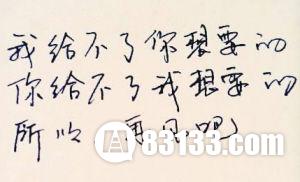 我给不了你想要的
你给不了我想要的
所以 再见吧
A 83133.com